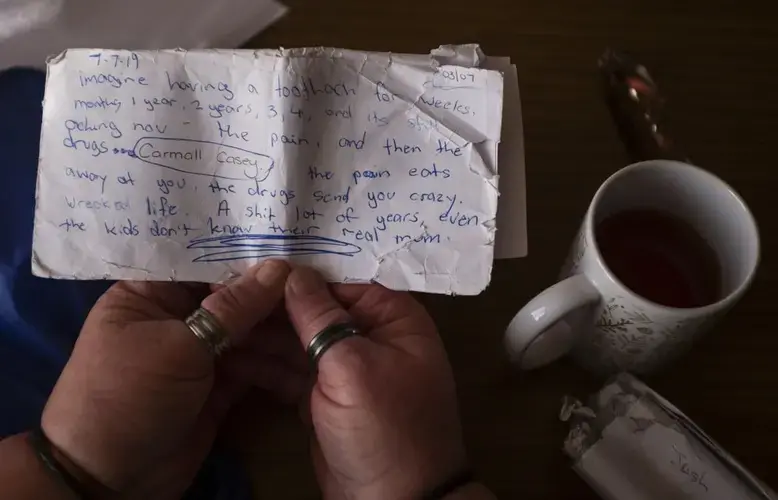 7.7.19
03/07
Imagine having a toothach for weeks,
months, 1 year, 2 years, 3, 4, and its still
aching now - the pain, and then the
drugs Carmall Casey. the pain eats
away at you, the drugs send you crazy.
wrecked life. A shit lot of years, even
the kids don't know their real mum.
Josh